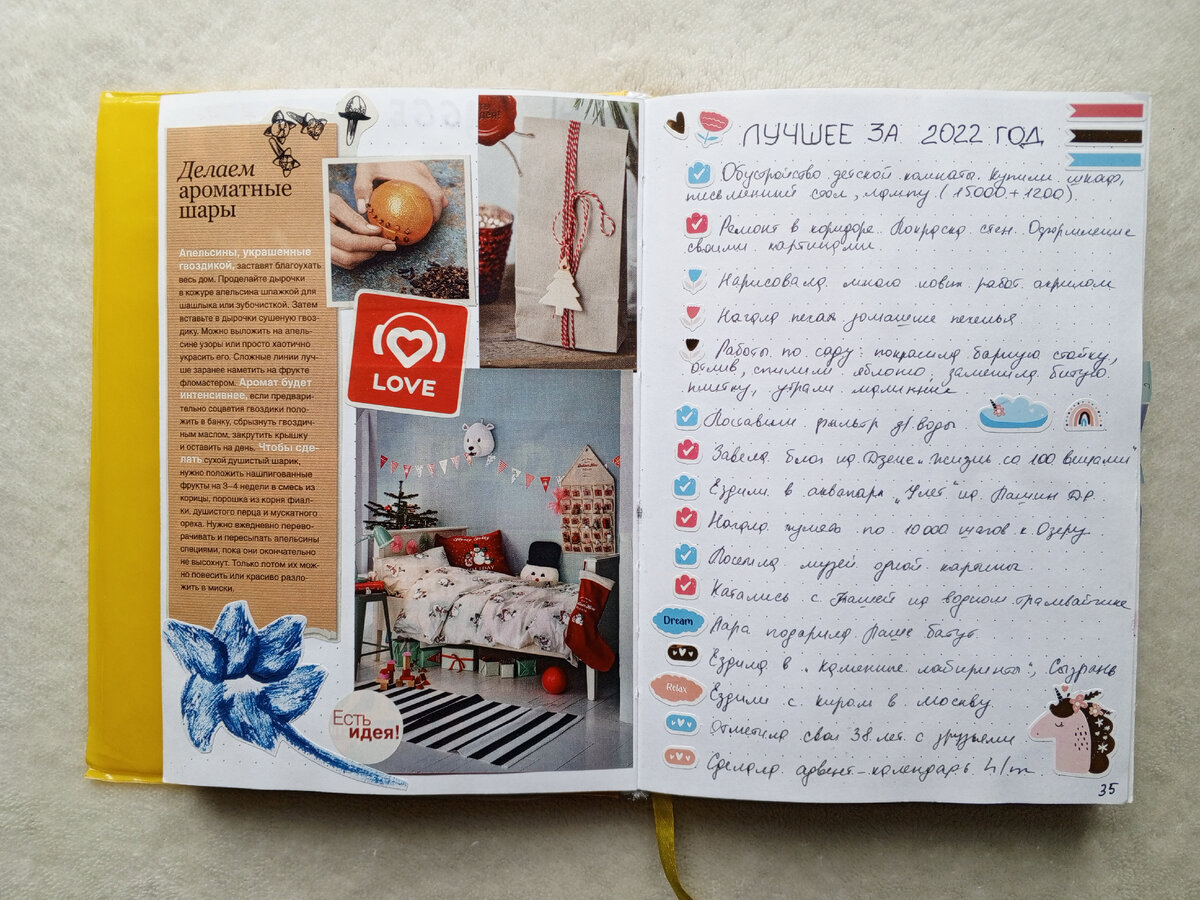 Делаем
ароматные
шары
Апельсины, украшенные
гвоздикой, заставят благоухать
весь дом. Проделайте дырочки
в кожуре апельсина шпажкой для
шашлыка или зубочисткой. Затем
вставьте в дырочки сушеную гвоз-
дику. Можно выложить на апель-
сине узоры или просто хаотично
украсить его. Сложные линии луч-
ше заранее наметить на фрукте
фломастером. Аромат будет
интенсивнее, если предвари-
тельно соцветия гвоздики поло-
жить в банку, сбрызнуть гвоздич-
ным маслом, закрутить крышку
и оставить на день. Чтобы сде-
лать сухой душистый шарик,
нужно положить нашпигованные
фрукты на 3–4 недели в смесь из
корицы, порошка из корня фиал-
ки, душистого перца и мускатного
ореха. Нужно ежедневно перево-
рачивать и пересыпать апельсины
специями, пока они окончательно
не высохнут. Только потом их мож-
но повесить или красиво разло-
жить в миски.
LOVE
Есть
идея!
ЛУЧШЕЕ ЗА 2022 ГОД
Обустройство детской комнаты. Купили шкаф,
письменный стол, лампу. (15000 + 1200).
Ремонт в коридоре. Покраска стен. Оформление
своими картинами.
Нарисовала много новых работ акрилом
Начала печь домашнее печенье
Работы по саду: покрасила барную стойку,
отлив, спилили яблоню, заменила битую
плитку, убрали малинник
Поставили фильтр д/воды
Завела блог на Дзене "Жизнь со 100 вещами"
Ездили в аквапарк "Улёт" на Пашин ДР.
Начала гулять по 10000 шагов к Озеру
Посетила музей одной картины
Катались с Пашей на водном трамвайчике
Dream
Лара подарила Паше батут
Ездила в "Каменные лабиринты", Сызрань
Relax
Ездили с Киром в Москву
Отметила свои 38 лет с друзьями
Сделала адвент-календарь
35